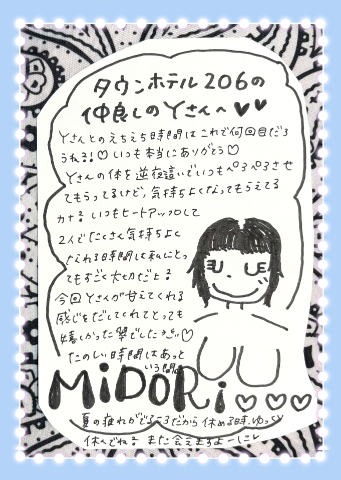 タウンホテル206の
仲良しのYさんへ♥♥
Yさんとのえちえち時間はこれで何回目だろ
うねる!♡いつも本当にありがとう♡
Yさんの体を逆夜這いでいつもペろペろさせ
てもらってるけど、気持ちよくなってもらえてる
カナ?いつもヒートアップして
2人でたくさん気持ちよく
なれる時間は私にとっ
てもすごく大切だよ?
今回Yさんが甘えてくれる
感じをだしてくれてとっても
嬉しかった翠でした♡
たのしい時間はあっと
いう間
MiDORi♡♡♡
夏の疲れがでるころだから休める時、ゆっくり
休んでね?また会えますよーに